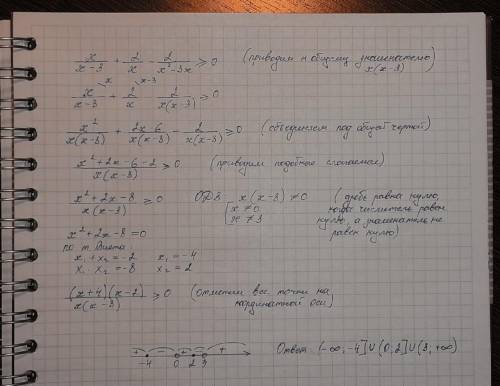 x/(x-3) + 2/x - 2/(x²-3x) ≥ 0 (приводим к общему знаменателю) x(x-3)
x/(x-3) + 2/x - 2/(x(x-3)) ≥ 0
x x-3
x²/(x(x-3)) + (2x-6)/(x(x-3)) - 2/(x(x-3)) ≥ 0 (объединяем под общей чертой)
(x²+2x-6-2)/(x(x-3)) ≥ 0 (приводим подобные слагаемые)
(x²+2x-8)/(x(x-3)) ≥ 0 ОДЗ x(x-3) ≠ 0 (дробь равна нулю,
[x ≠ 0 когда числитель равен
x ≠ 3 нулю, а знаменатель не
x²+2x-8=0 равен нулю)
по т. Виета:
x₁+x₂=-2 x₁=-4
x₁·x₂=-8 x₂=2
((x+4)(x-2))/(x(x-3)) ≥ 0 (отметим все точки на
координатной оси)
+ - + - +
-4 0 2 3
Ответ: (-∞;-4]∪(0;2]∪(3;+∞)